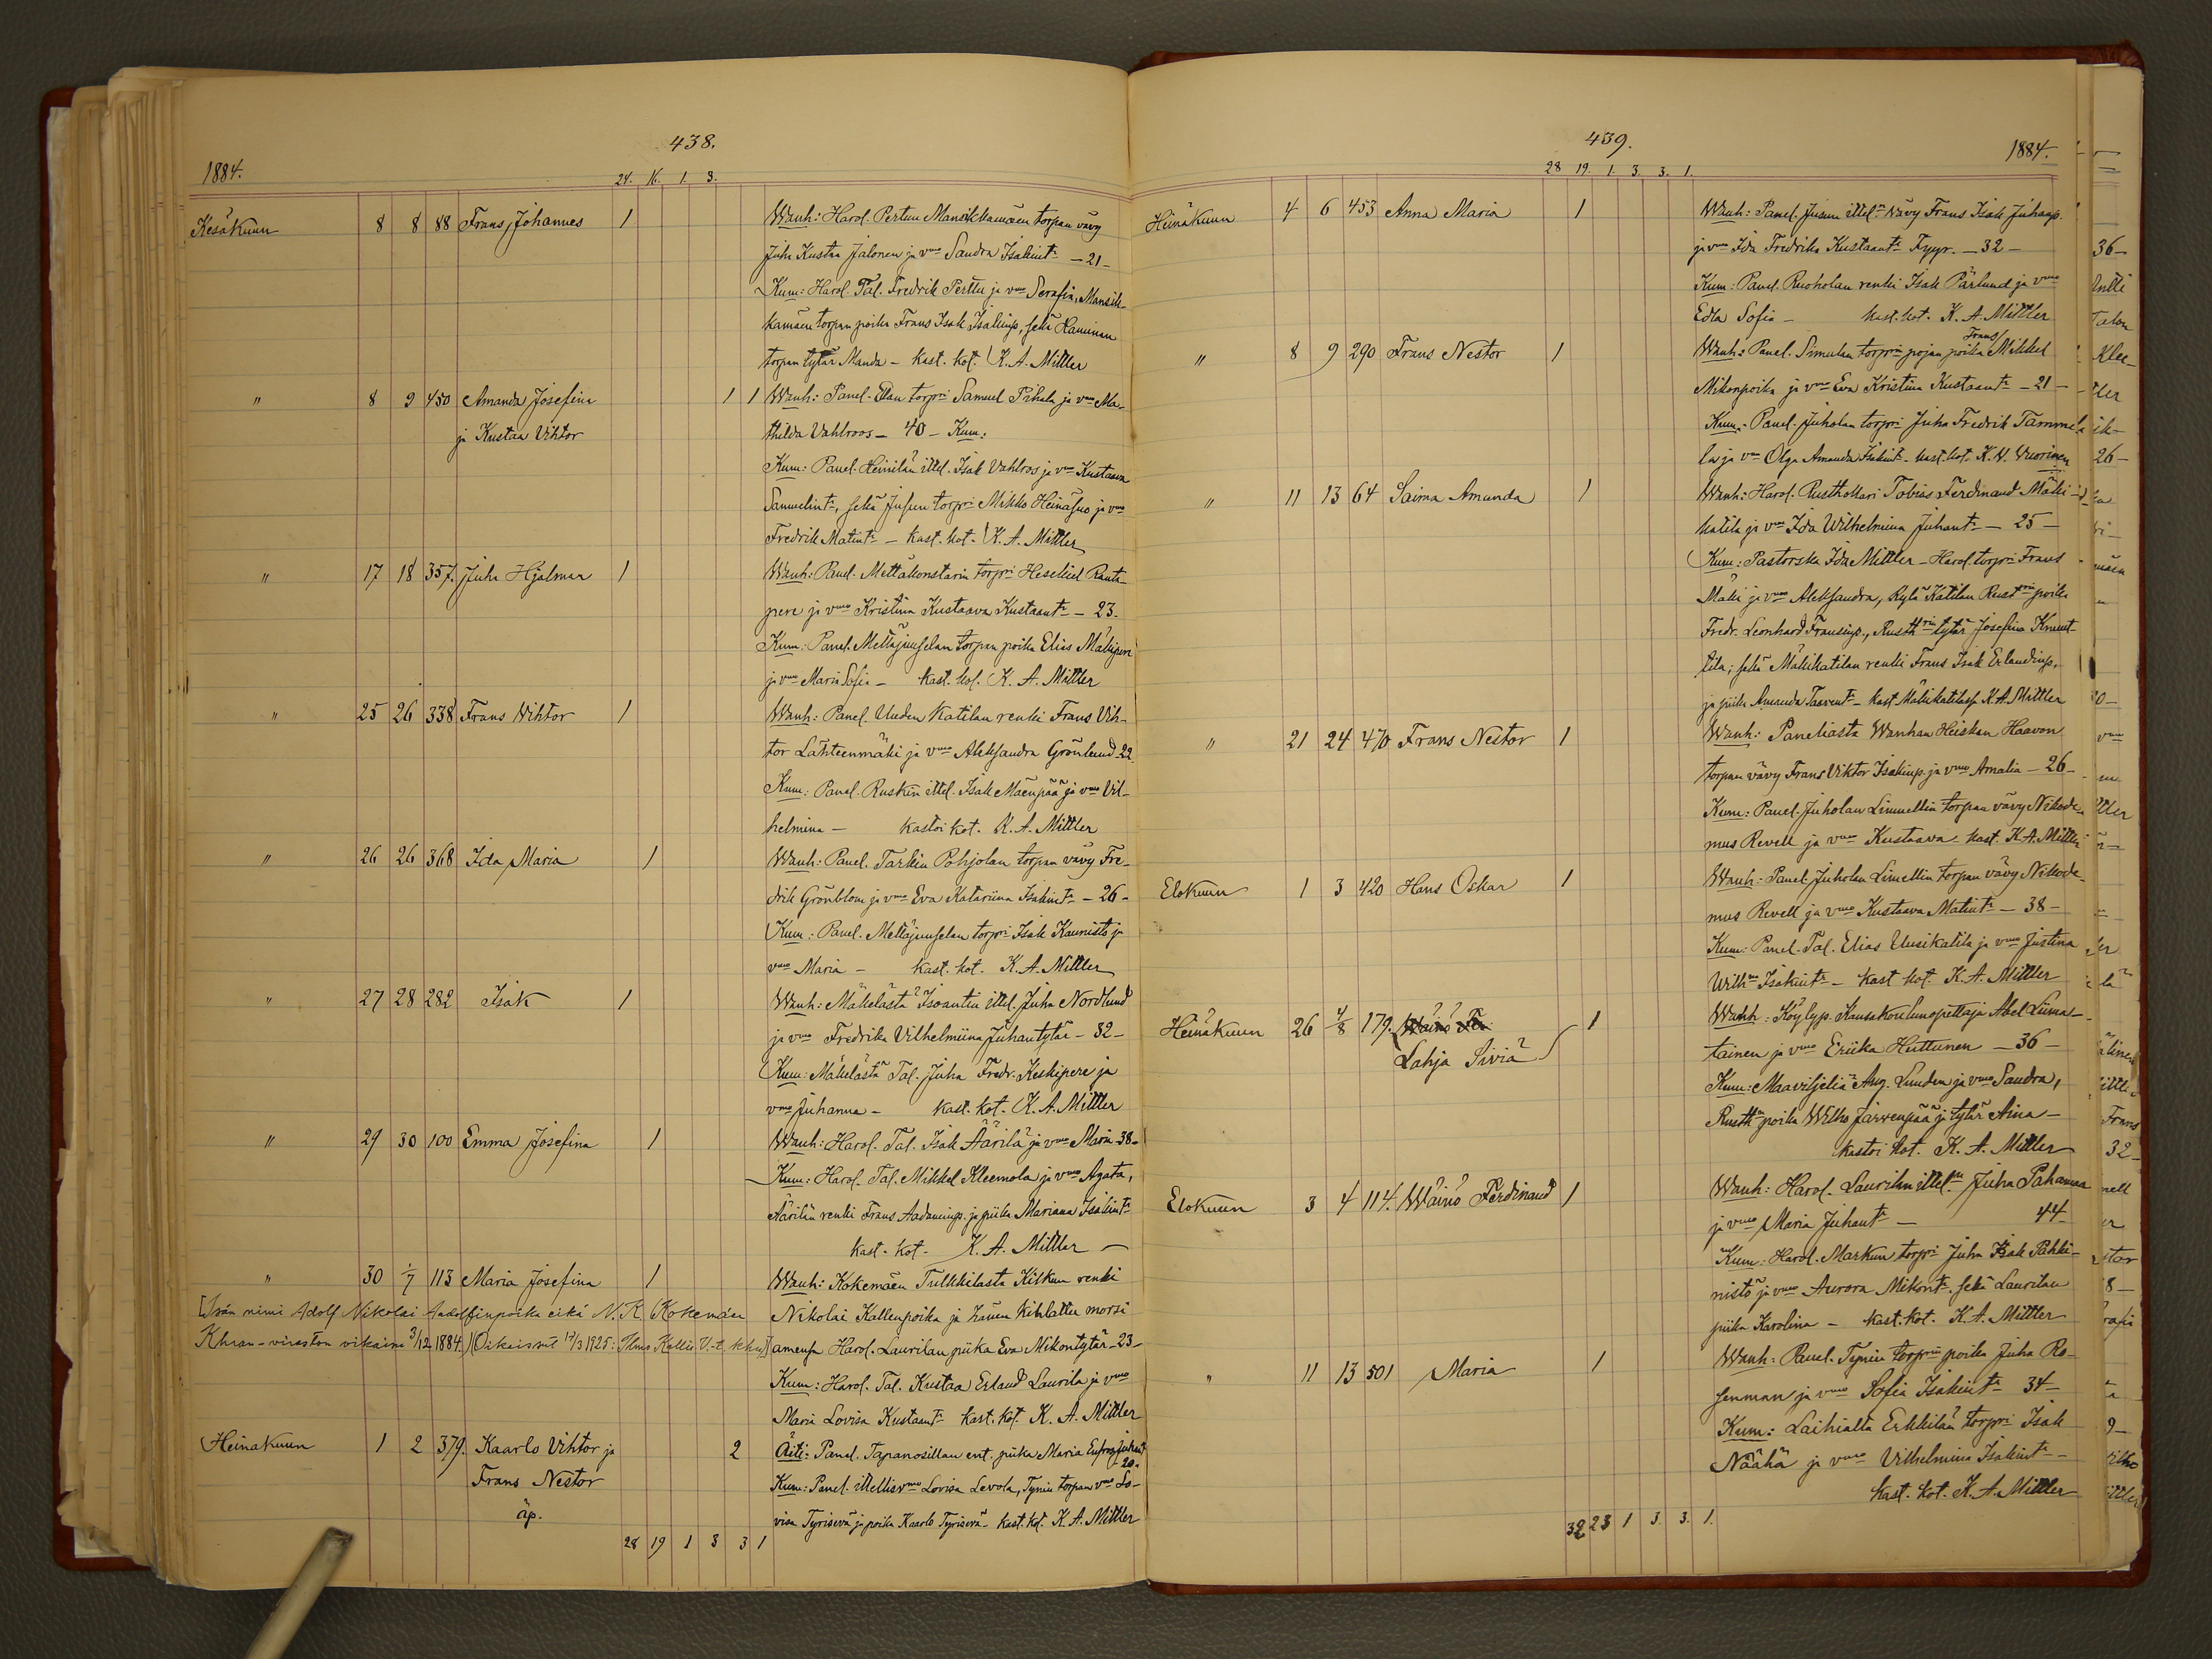 438.
1884.
24. 16. 1. 3.
Kesäkuun 8 8 88 Frans Johannes 1 Wanh: Harol. Pertun Mansikkamäen torpan vävy
Juho Kustaa Jalonen ja vmo Sandra Isakint: - 21 -
Kum: Harol. Tal. Fredrik Perttu ja vmo Serafia, Mansik-
kamäen torpan poika Frans Isak Isakinp, sekä Haminan
torpan tytär Manda - kast. kot. K. A. Mittler
" 8 9 450 Amanda Josefina 1 1 Wanh: Panel. torpri Samuel Pihala ja vmo Ma-
ja Kustaa Vihtor thilda Vahlroos - 40 - Kum:
Kum: Panel. Heinilän ittel. Isak Vahlros ja vmo Kustaava
Samuelint:, sekä Jusun torpri Mikko Heinäsuo ja vmo
Fredrik Matint: - kast. kot. K. A. Mittler
" 17 18 357. Juho Hjalmar 1 Wanh: Panel. Mettäkonstarin torpri Heskiel Ranta-
pere ja vmo Kristina Kustaava Kustaant: - 23.
Kum: Panel. Mettäjuuselan torpan poika Elias Mäkipere
ja vmo Maria Sofia - kast. kot. K. A. Mittler
" 25 26 338 Frans Vihtor 1 Wanh: Panel. Uuden Katilan renki Frans Vih-
tor Lähteenmäki ja vmo Aleksandra Grönlund 22
Kum: Panel. Ruskin ittel. Isak Mäenpää ja vmo Vil-
helmina - kastoi kot. K. A. Mittler
" 26 26 368 Ida Maria 1 Wanh: Panel. Tarkin Pohjolan torpan vävy Fre-
drik Grönblom ja vmo Eva Katariina Isakint: - 26 -
Kum: Panel. Mettäjuuselan torpri Isak Kaunisto ja
vmo Maria - kast. kot. K. A. Mittler
" 27 28 282 Isak 1 Wanh: Mäkelästä Isoantin ittel. Juha Nordlund
ja vmo Fredrika Vilhelmiina Juhantytär - 32 -
Kum: Mäkelästä Tal. Juha Fredr. Keskipere ja
vmo Juhanna - kast. kot. K. A. Mittler
" 29 30 100 Emma Josefina 1 Wanh: Harol. Tal. Isak Äärilä ja vmo Maria 38 -
Kum: Harol. Tal. Mikkel Kleemola ja vmo Agata,
Äärilän renki Frans Aadaminp. ja piika Mariana Isakint:
kast. kot. K. A. Mittler
" 30 1/7 113 Maria Josefina 1 Wanh: Kokemäen Tulkkilasta Kilkun renki
[Isän nimi Adolf Nikolai Aadolfinpoika eikä N. K. (Kokemäen Nikolai Kallenpoika ja hänen kihlattu morsi
Khran-viraston vikaina 3/12 1884.) (Oikaissut 17/3 1925: Ilmo Kallio V.-t. khra)] amensa Harol. Laurilan piika Eva Mikontytär - 23 -
Kum: Harol. Tal. Kustaa Erland Laurila ja vmo
Maria Lovisa Kustaant: kast. kot. K. A. Mittler
Heinäkuun 1 2 379. Kaarlo Vihtor ja 2 Äiti: Panel. Tapanosillan ent. piika Maria Eufros. Juhant
Frans Nestor 20.
Kum: Panel. ittellisvmo Lovisa Levola, Tynin torpan vmo Lo-
äp. visa Tyrisevä ja poika Kaarlo Tyrisevä - kast. kot. K. A. Mittler
28 19 1 3 3 1
439.
1884.
28 19. 1. 3. 3. 1.
Heinäkuun 4 6 453 Anna Maria 1 Wanh: Panel. Jusun ittel:n vävy Frans Isak Juhanp.
ja vmo Ida Fredrika Kustaant: Fyyr. - 32 -
Kum: Panel. Ruoholan renki Isak Pärlund ja vmo
Edla Sofia - kast. kot. K. A. Mittler
Frans/
" 8 9 290 Frans Nestor 1 Wanh: Panel. Simulan torprin pojan poika Mikkel
Mikonpoika ja vmo Eva Kristina Kustaant: - 21 -
Kum: Panel. Juholan torpri Juha Fredrik Tammela
la ja vmo Olga Amanda Isakint: kast. kot. K. V. Vuorinen
" 11 13 64 Saima Amanda 1 Wanh: Harol. Rusthollari Tobias Ferdinand Mäki-
katila ja vmo Ida Wilhelmina Juhant: - 25 -
Kum: Pastorska Ida Mittler - Harol. torpri Frans
Mäki ja vmo Aleksandra, Kylä Katilan Rustrin poika
Fredr. Leonhard Fransinp., Rusthrin tytär Josefina Knuut-
tila; sekä Mäkikatilan renki Frans Isak Erlandinp,
ja piika Amanda Taavent: kast. Mäkikatilassa K. A. Mittler
" 21 24 470 Frans Nestor 1 Wanh: Paneliasta Wanhan Heiskan Haavon
torpan vävy Frans Viktor Isakinp. ja vmo Amalia - 26 -
Kum: Panel. Juholan Limnellin torpan vävy Nikode-
mus Revell ja vmo Kustaava - kast. K. A. Mittler
Elokuun 1 3 420 Hans Oskar 1 Wanh: Panel. Juholan Limellin torpan vävy Nikode-
mus Revell ja vmo Kustaava Matint: - 38 -
Kum: Panel. Tal. Elias Uusikatila ja vmo Justina
Wilhna Isakint: - kast. kot. K. A. Mittler
Heinäkuun 26 4/8 179. Wäinö 1 Wanh: Köylyp. Kansakoulunopettaja Abel Liima-
Lahja Siviä tainen ja vmo Eriika Huttunen - 36 -
Kum: Maaviljeliä Aug. Lunden ja vmo Sandra,
Rusth:n poika Wilho Järvenpää ja tytär Aina -
kastoi kot. K. A. Mittler
Elokuun 3 4 114. Wäinö Ferdinand 1 Wanh: Harol. Laurilan ittel:n Juha Pahanaa
ja vmo Maria Juhant: - 44 -
Kum: Harol. Markun torpri Juha Isak Pahki-
nistö ja vmo Aurora Mikont: sekä Laurilan
piika Karolina - kast. kot. K. A. Mittler
" 11 13 501 Maria 1 Wanh: Panel. Tynin torprin poika Juha Ro-
senman ja vmo Sofia Isakint: 34 -
Kum: Laihialta Erkkilän torpri Isak
Näähä ja vmo Vilhelmina Isakint: -
kast. kot. K. A. Mittler
32 23 1 3. 3. 1.